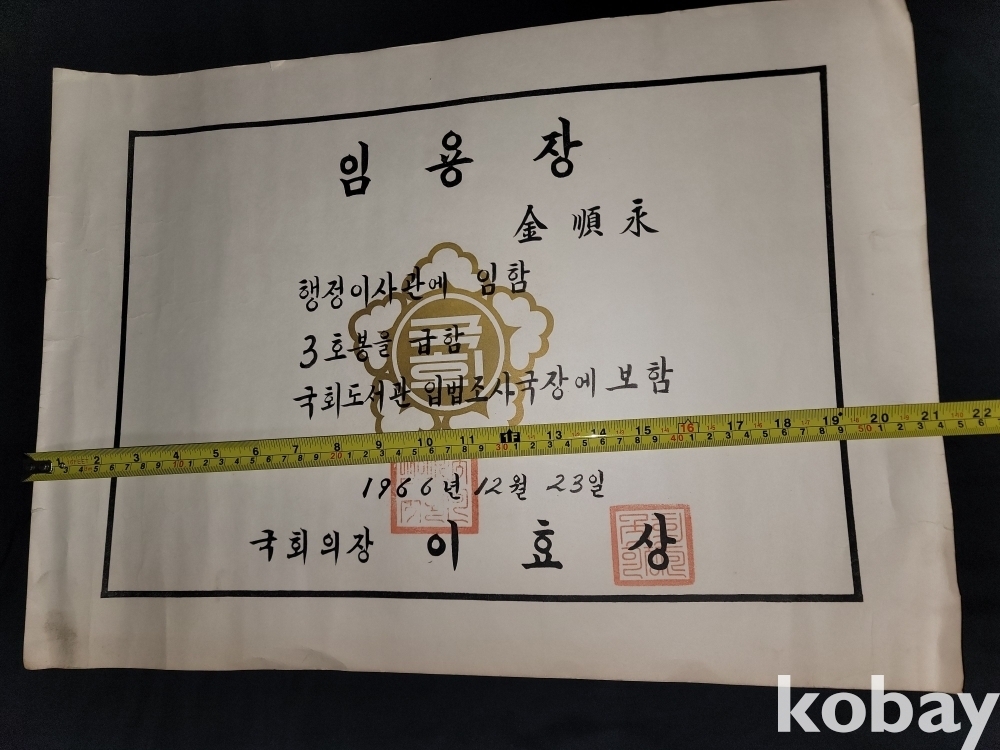 임 용 장
金 順 永
행정이사관에 임함
3호봉을 급함
국회도서관 입법조사국장에 보함
1966년 12월 23일
국회의장 이 효 상
kobay